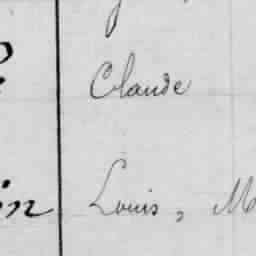 Claude
in Louis, M